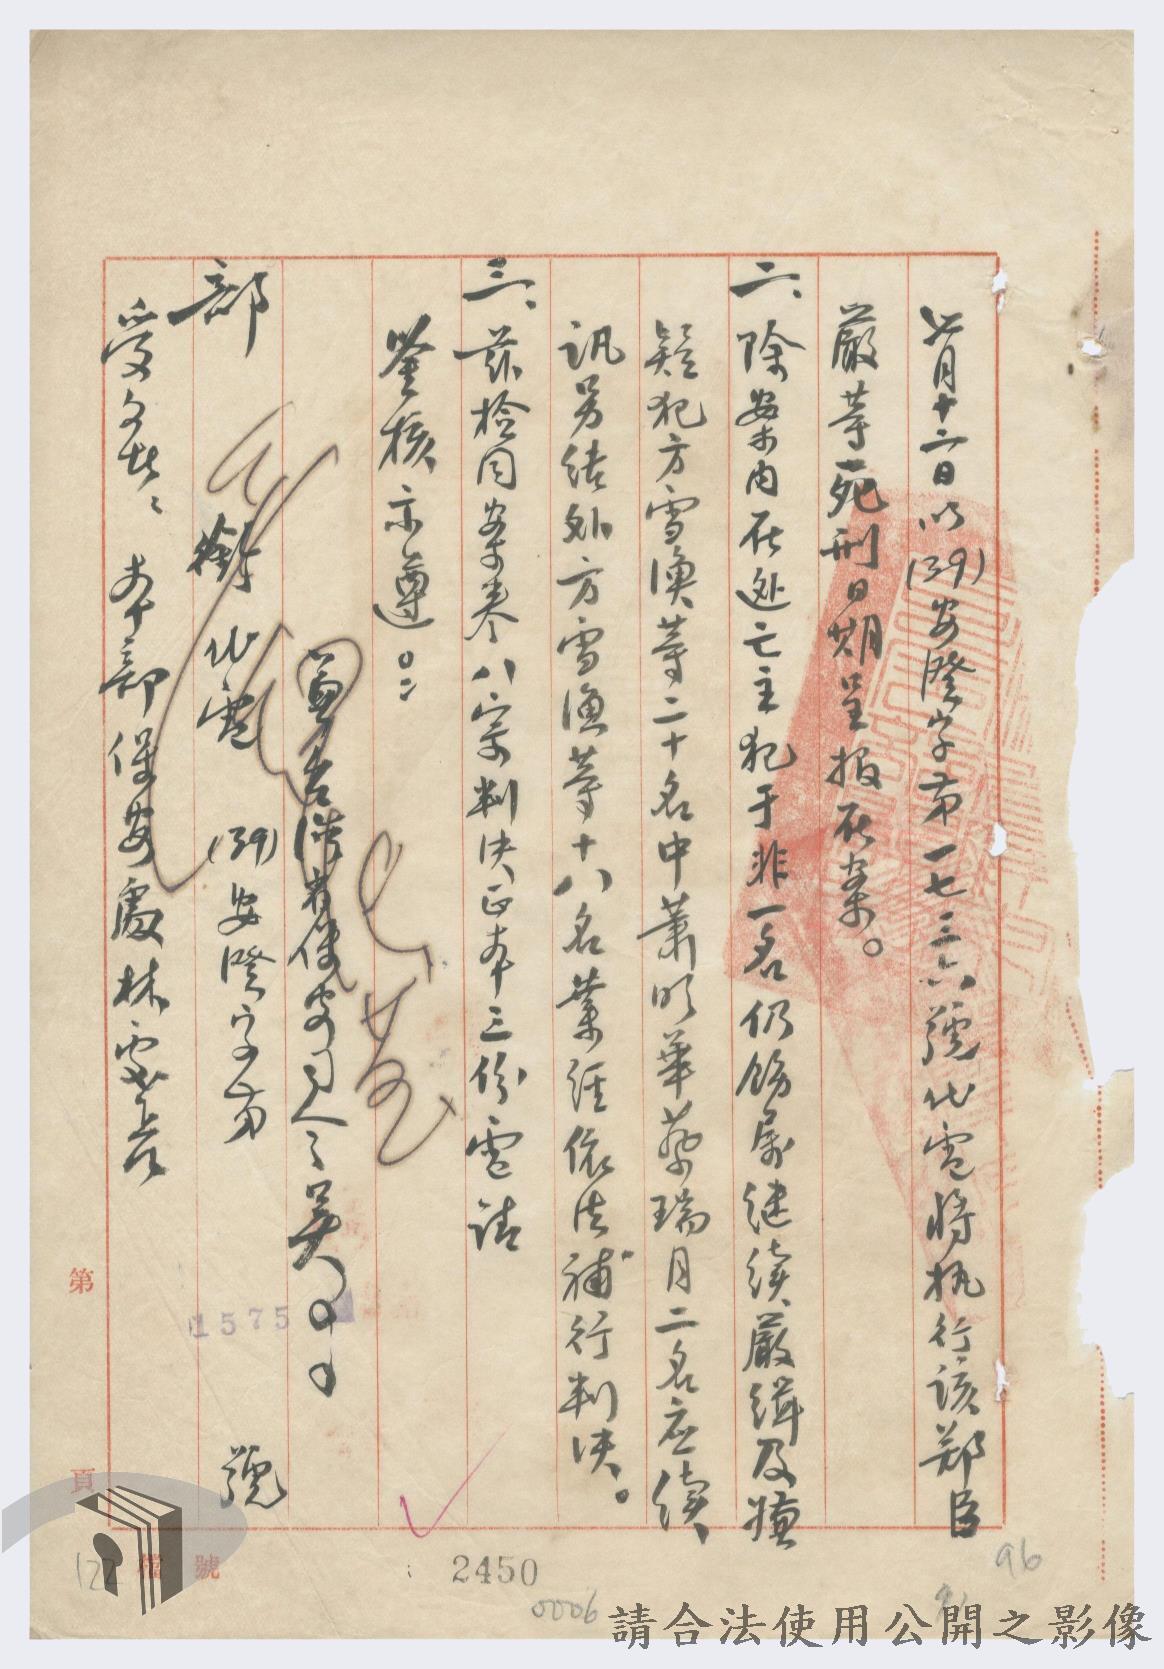 七月十二日以(39)安澄字第一七三六號代電將执行該鄭臣
嚴等死刑日期呈报在案。
二、除案内在逃亡主犯于非一名仍飭屬继續嚴緝及嫌
疑犯方雪漁等二十名中蕭明華蔡瑞月二名应續
訊另结外方雪漁等十八名業经依法補行判决。
三、兹检同案卷八宗判决正本三份電請
鉴核示遵。:
部 銜代電 (39)安澄字第 號
受文者: 本部保安處林處長
第
頁
1575
檔號
122
2450
0006
96
請合法使用公開之影像